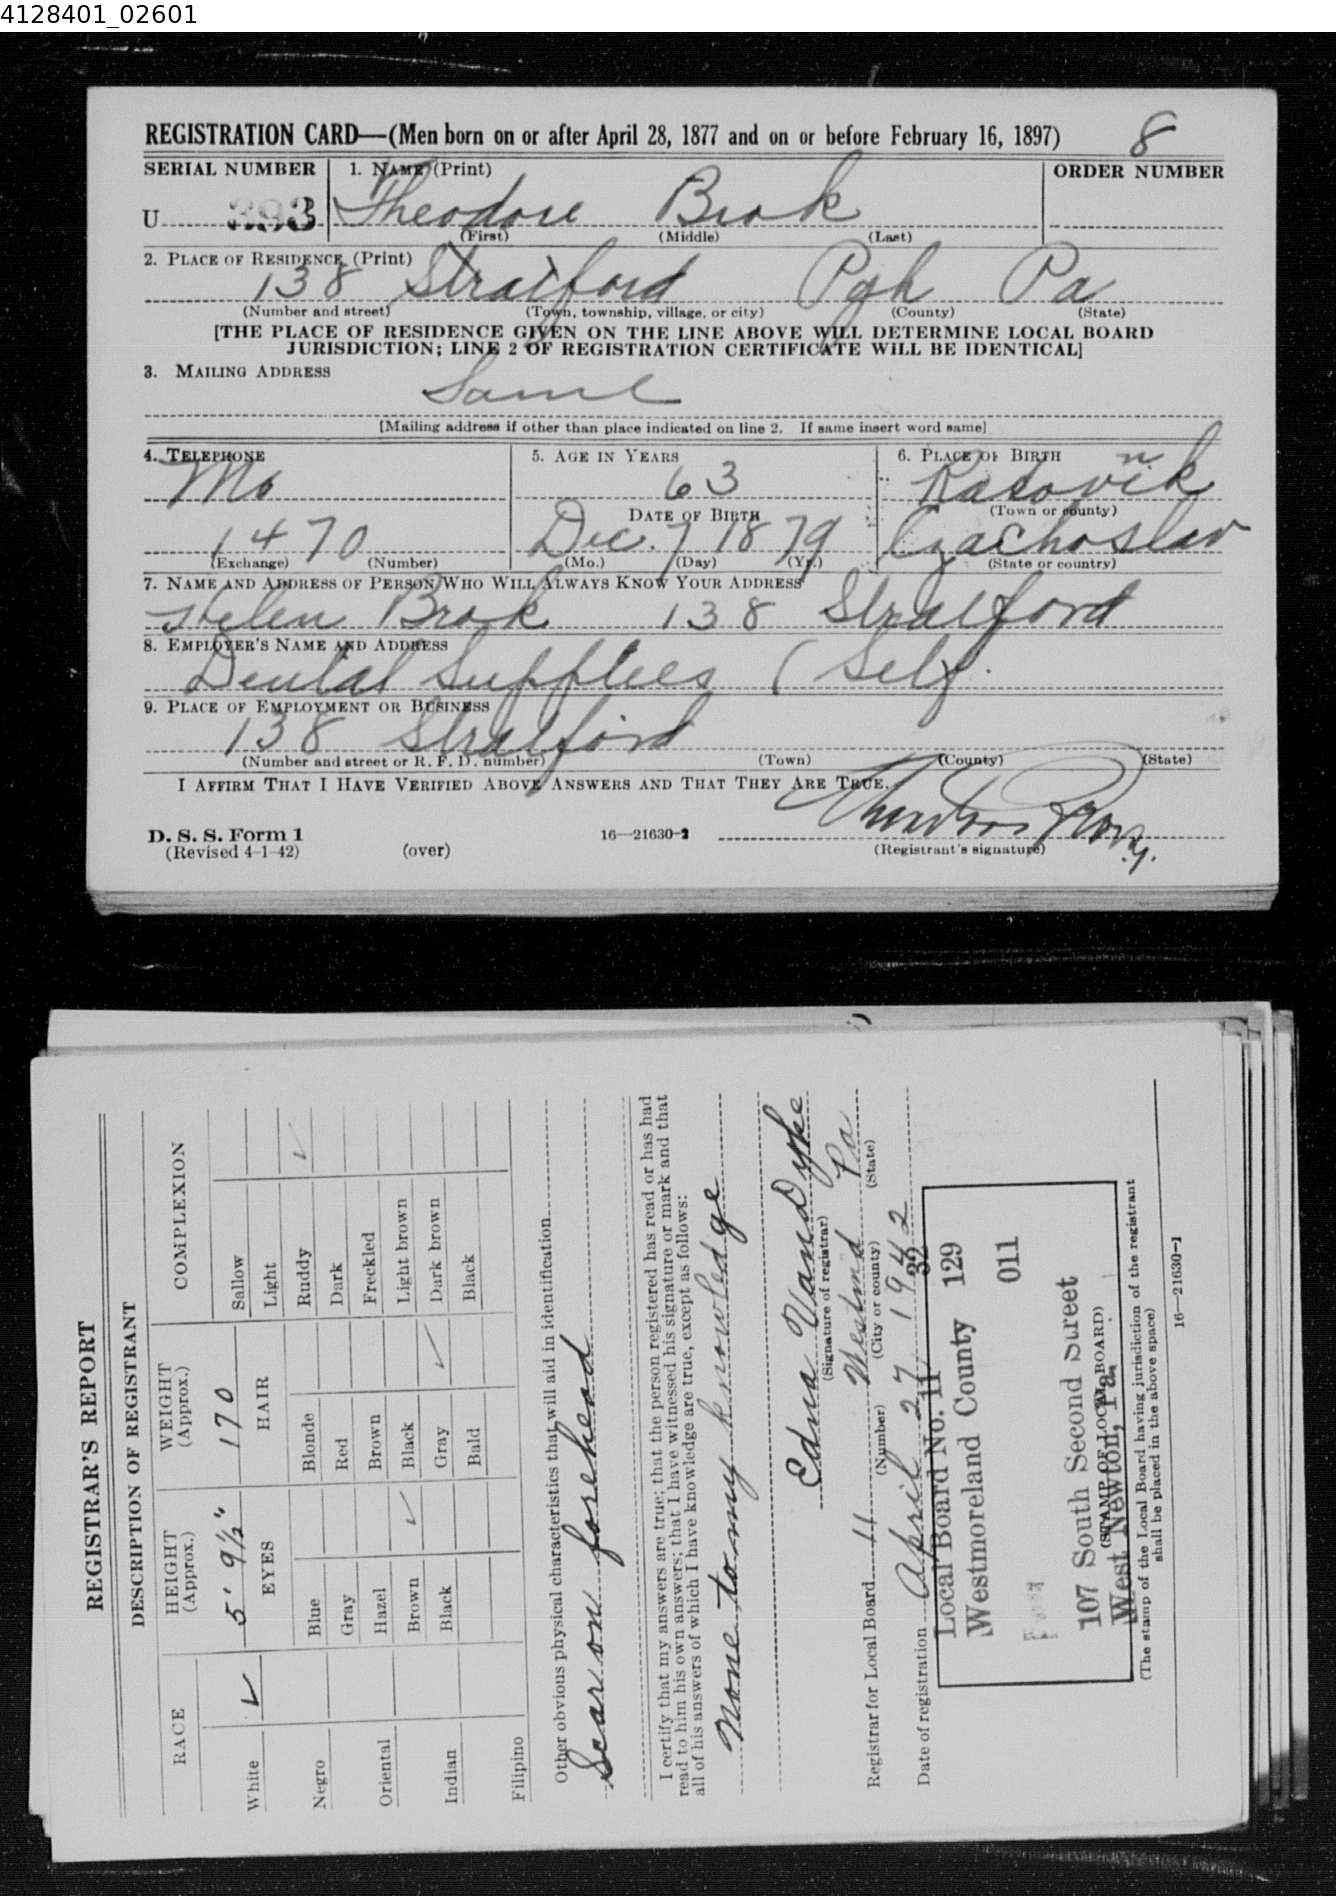 4128401_02601
REGISTRATION CARD—(Men born on or after April 28, 1877 and on or before February 16, 1897) 8
SERIAL NUMBER 1. NAME (Print) ORDER NUMBER
U 393 Theodore Brok
(First) (Middle) (Last)
2. PLACE OF RESIDENCE (Print)
138 Stratford Pgh Pa
(Number and street) (Town, township, village, or city) (County) (State)
[THE PLACE OF RESIDENCE GIVEN ON THE LINE ABOVE WILL DETERMINE LOCAL BOARD
JURISDICTION; LINE 2 OF REGISTRATION CERTIFICATE WILL BE IDENTICAL]
3. MAILING ADDRESS
Same
[Mailing address if other than place indicated on line 2. If same insert word same]
4. TELEPHONE 5. AGE IN YEARS 6. PLACE OF BIRTH
Mo 63
DATE OF BIRTH (Town or county)
1470 Dec. 7 1879 Czachoslav
(Exchange) (Number) (Mo.) (Day) (Yr.) (State or country)
7. NAME AND ADDRESS OF PERSON WHO WILL ALWAYS KNOW YOUR ADDRESS
Helen Brok 138 Stratford
8. EMPLOYER'S NAME AND ADDRESS
Dental Supplies (Self
9. PLACE OF EMPLOYMENT OR BUSINESS
138 Stratford
(Number and street or R. F. D. number) (Town) (County) (State)
I AFFIRM THAT I HAVE VERIFIED ABOVE ANSWERS AND THAT THEY ARE TRUE.
D. S. S. Form 1
(Revised 4-1-42) (over) 16—21630-2
(Registrant's signature)
REGISTRAR'S REPORT
DESCRIPTION OF REGISTRANT
RACE HEIGHT (Approx.) WEIGHT (Approx.) COMPLEXION
5' 9½" 170
EYES HAIR
White ✓ Sallow
Light
Negro Blue Blonde Ruddy ✓
Gray Red Dark
Oriental Hazel Brown Freckled
Brown ✓ Black Light brown
Indian Black Gray ✓ Dark brown
Bald Black
Filipino
Other obvious physical characteristics that will aid in identification
Scar on forehead
I certify that my answers are true; that the person registered has read or has had
read to him his own answers; that I have witnessed his signature or mark and that
all of his answers of which I have knowledge are true, except as follows:
None to my knowledge
Edna VanDyke
(Signature of registrar)
Registrar for Local Board 11 Westmd Pa
(Number) (City or county) (State)
Date of registration April 27 1942
32
Local Board No. 11 129
Westmoreland County 011
107 South Second Street
(STAMP OF LOCAL BOARD)
West Newton, Pa.
(The stamp of the Local Board having jurisdiction of the registrant
shall be placed in the above space)
16—21630-1